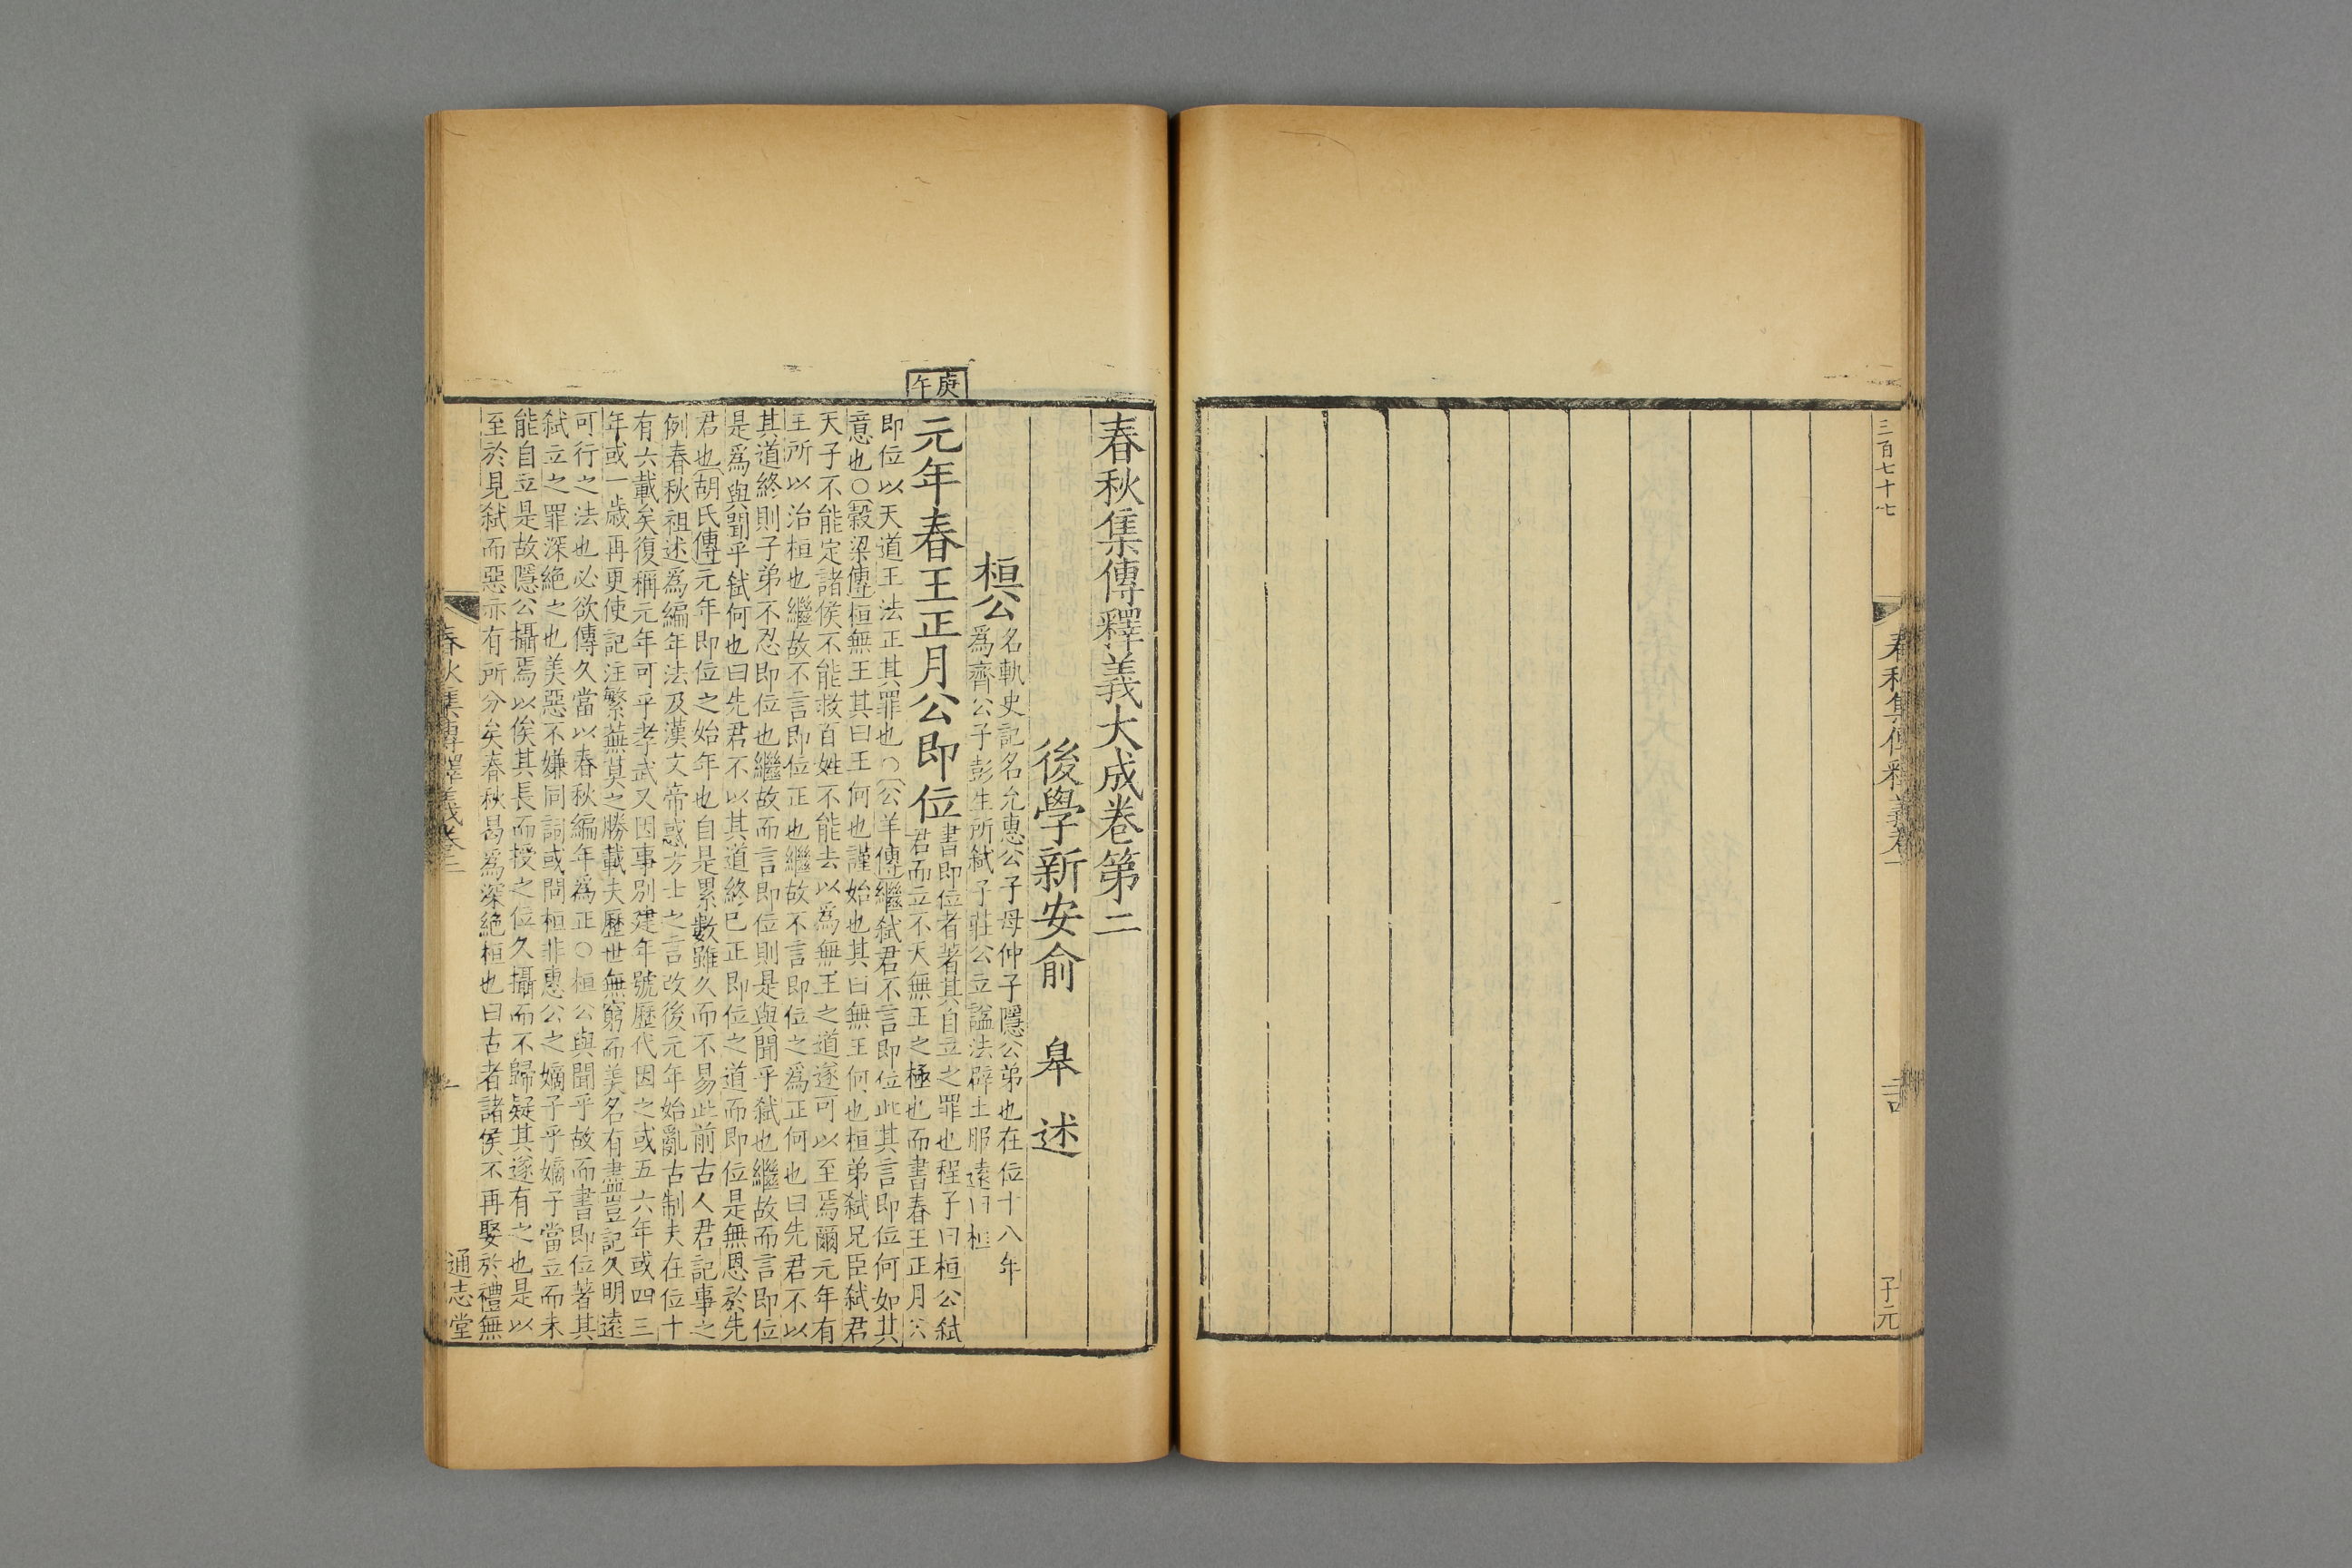 三百七十七
春秋集傳釋義卷一
子元
春秋集傳釋義大成卷第二
後學新安俞 皋 述
桓公
名軌史記名允惠公子母仲子隱公弟也在位十八年
爲齊公子彭生所弑子莊公立謚法辟土服遠曰桓
庚午
元年春王正月公即位
書即位者著其自立之罪也程子曰桓公弑
君而立不天無王之極也而書春王正月公
即位以天道王法正其罪也○公羊傳繼弑君不言即位此其言即位何如其
意也○穀梁傳桓無王其曰王何也謹始也其曰無王何也桓弟弑兄臣弑君
天子不能定諸侯不能救百姓不能去以爲無王之道遂可以至焉爾元年有
王所以治桓也繼故不言即位正也繼故不言即位之爲正何也曰先君不以
其道終則子弟不忍即位也繼故而言即位則是與聞乎弑也繼故而言即位
是爲與聞乎弑何也曰先君不以其道終已正即位之道而即位是無恩於先
君也胡氏傳元年即位之始年也自是累數雖久而不易此前古人君記事之
例春秋祖述爲編年法及漢文帝惑方士之言改後元年始亂古制夫在位十
有六載矣復稱元年可乎孝武又因事別建年號歷代因之或五六年或四三
年或一歲再更使記注繁蕪莫之勝載夫歷世無窮而美名有盡豈記久明遠
可行之法也必欲傳久當以春秋編年爲正○桓公與聞乎故而書即位著其
弑立之罪深絶之也美惡不嫌同詞或問桓非惠公之嫡子乎嫡子當立而未
能自立是故隱公攝焉以俟其長而授之位久攝而不歸疑其遂有之也是以
至於見弑而惡亦有所分矣春秋曷爲深絶桓也曰古者諸侯不再娶於禮無
春秋集傳釋義卷二
一
通志堂